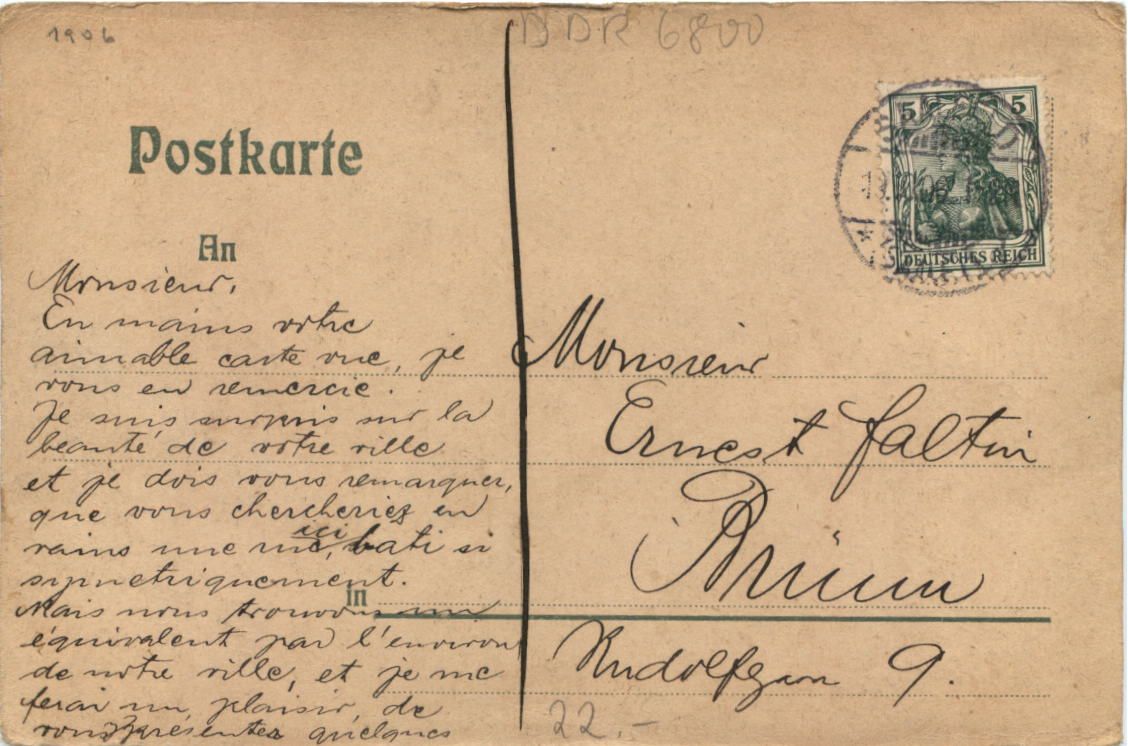 1906
DDR 6800
Postkarte
5 5
DEUTSCHES REICH
An
Monsieur,
En mains votre
aimable carte vue, je
vous en remercie.
Je suis surpris sur la
beauté de votre ville
et je dois vous remarquer,
que vous chercheriez en
vains une rue, ici bati si
symetriquement.
Mais nous trouvons un
équivalent par l'environ
de notre ville, et je me
ferai un plaisir, de
vous présenter quelques
Monsieur
Ernest Faltin
Brünn
in
Rudolfgan 9.
22.-